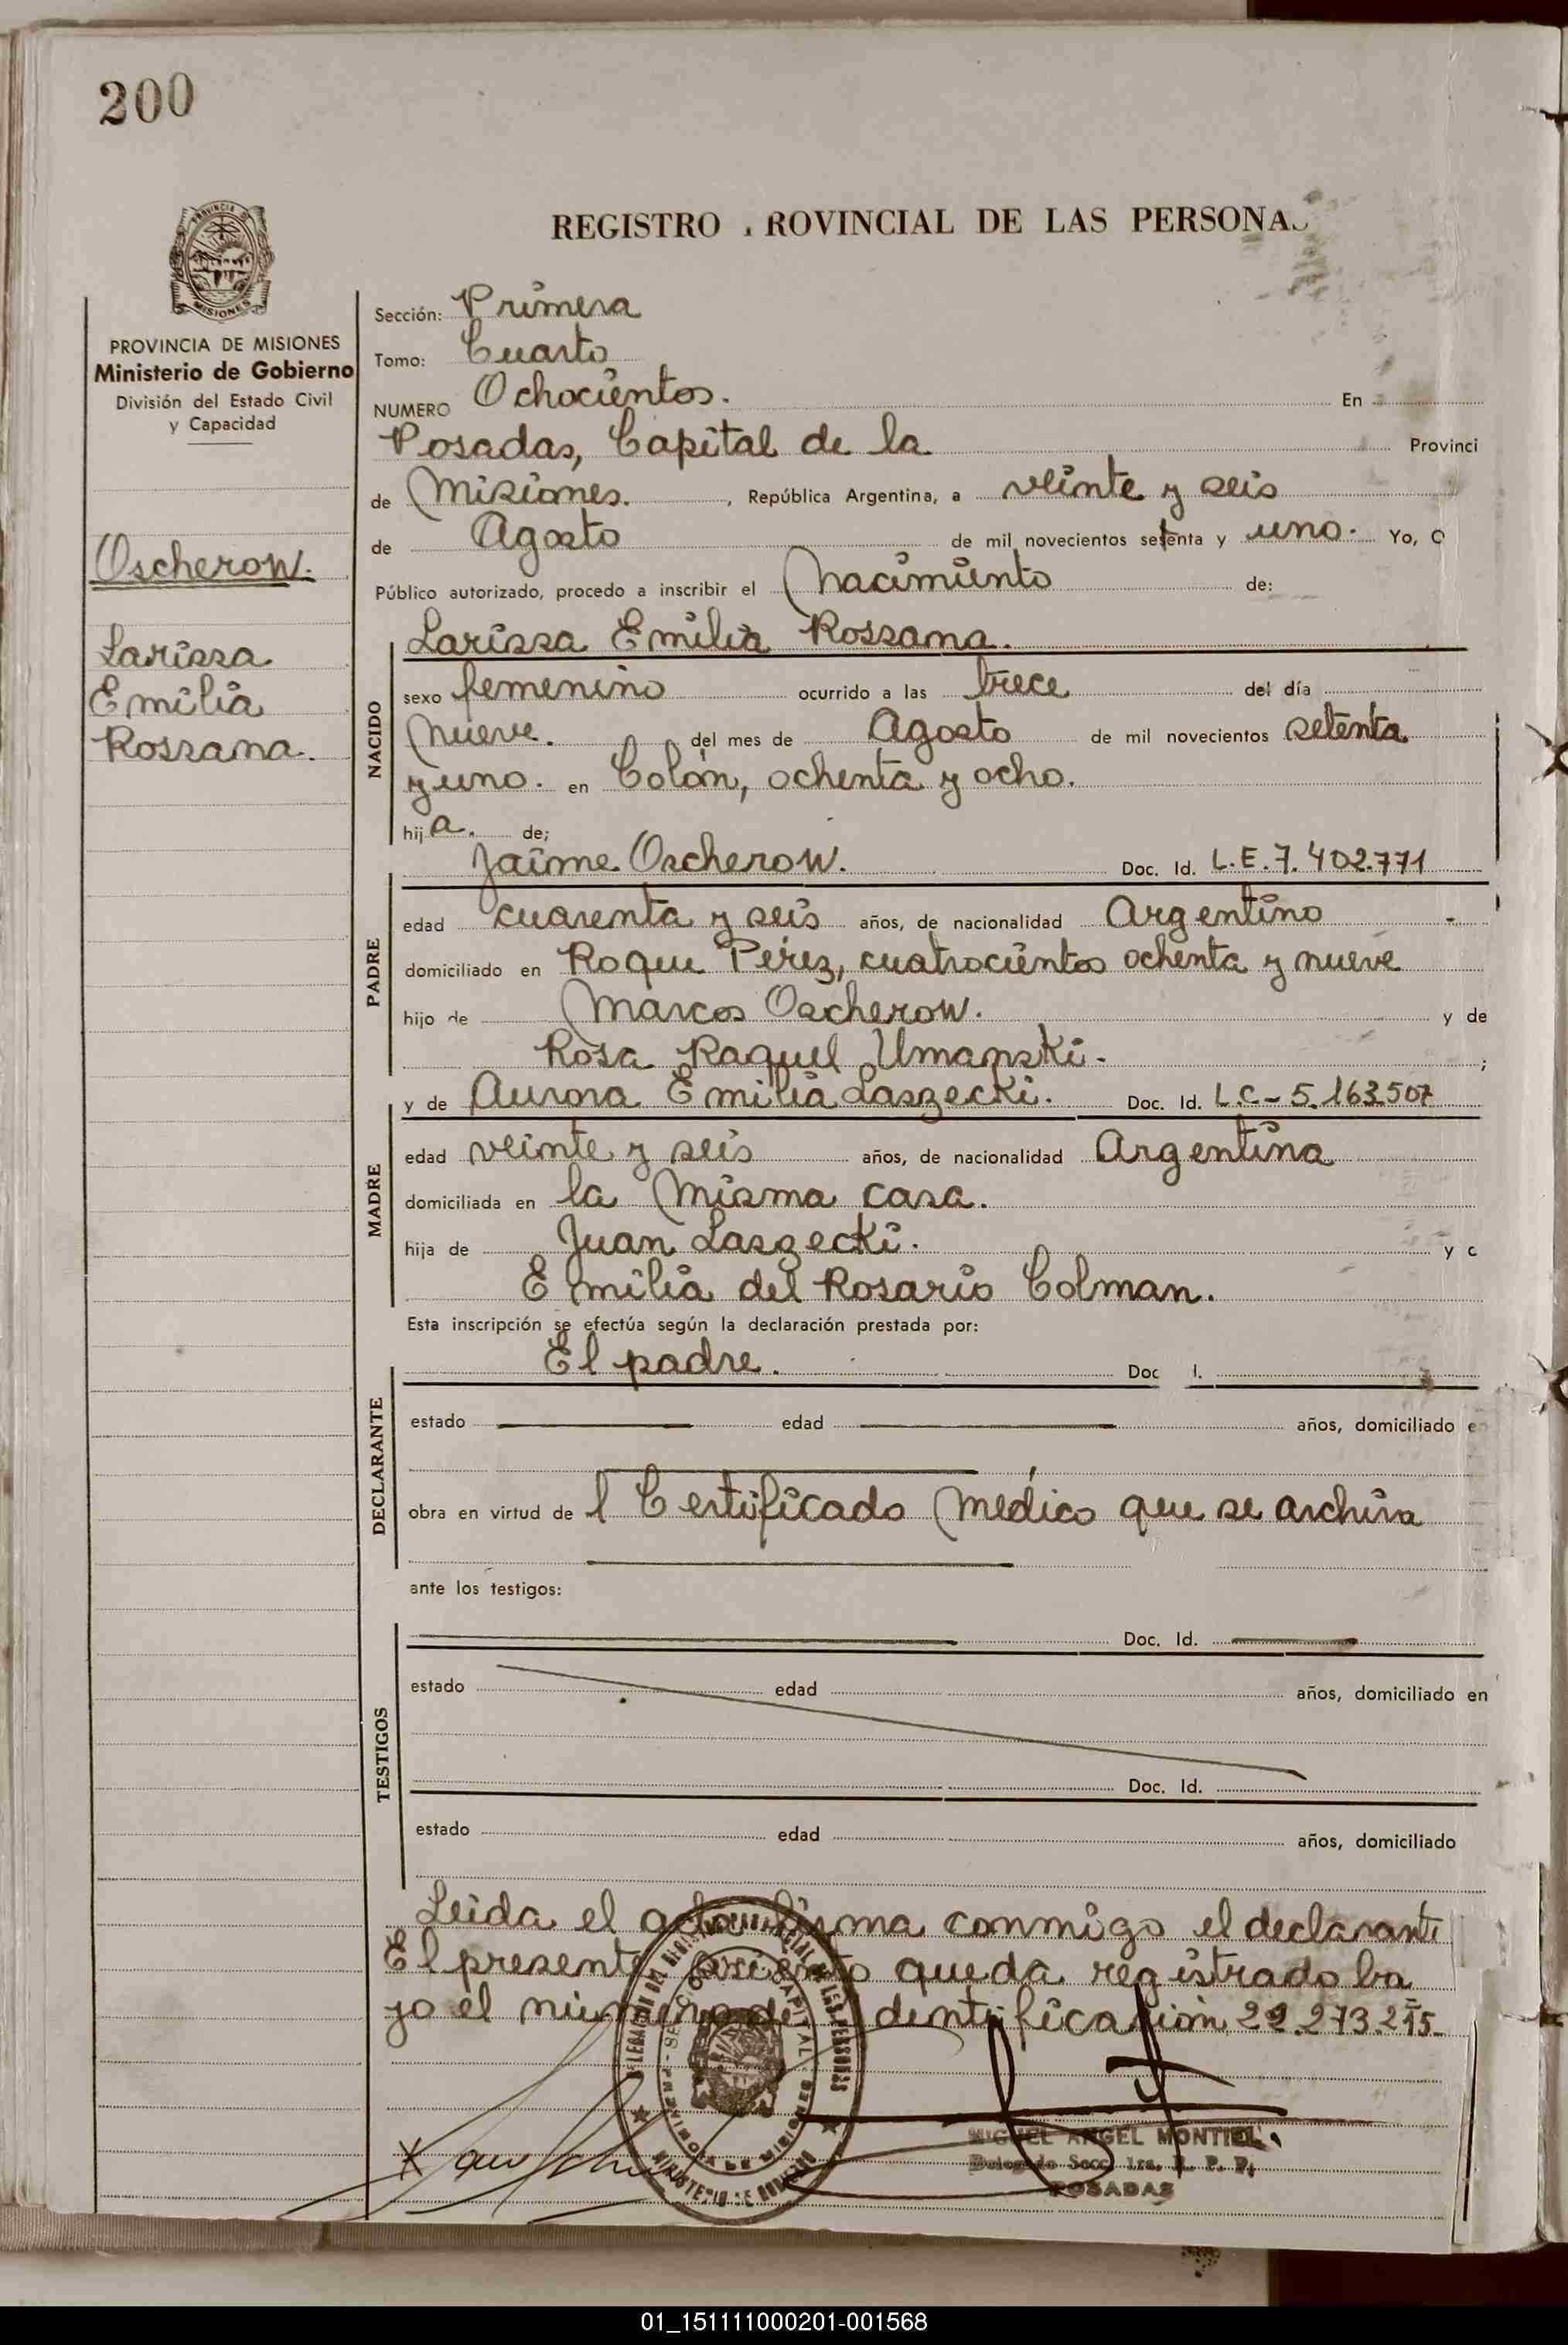 200
PROVINCIA DE
MISIONES
REGISTRO ROVINCIAL DE LAS PERSONA
PROVINCIA DE MISIONES
Ministerio de Gobierno
División del Estado Civil
y Capacidad
Oscherow.
Larissa
Emilia
Rossana.
Sección: Primera
Tomo: Cuarto
NUMERO Ochocientos. En
Posadas, Capital de la Provinci
de Misiones. , República Argentina, a veinte y seis
de Agosto de mil novecientos setenta y uno. Yo, O
Público autorizado, procedo a inscribir el Nacimiento de:
NACIDO
Larissa Emilia Rossana.
sexo femenino ocurrido a las trece del día
Nueve. del mes de Agosto de mil novecientos setenta
y uno. en Colón, ochenta y ocho.
hija. de;
PADRE
Jaime Oscherow. Doc. Id. L.E.7.402.771
edad cuarenta y seis años, de nacionalidad Argentino
domiciliado en Roque Pérez, cuatrocientos ochenta y nueve
hijo de Marcos Oscherow. y de
Rosa Raquel Umanski. ;
MADRE
y de Aurora Emilia Laszecki. Doc. Id. L.C-5.163.507
edad veinte y seis años, de nacionalidad Argentina
domiciliada en la Misma casa.
hija de Juan Laszecki. y
Emilia del Rosario Colman.
Esta inscripción se efectúa según la declaración prestada por:
DECLARANTE
El padre. Doc
estado edad años, domiciliado e
obra en virtud de l Certificado Médico que se archiva
ante los testigos:
TESTIGOS
Doc. Id.
estado edad años, domiciliado en
Doc. Id.
estado edad años, domiciliado
Leida el acta firma conmigo el declarante
El presente asiento queda registrado ba
jo el número de identificación 22.273.215.
MIGUEL ANGEL MONTIEL
Delegado Secc. 1ra. R. P. P.
POSADAS
01_151111000201-001568